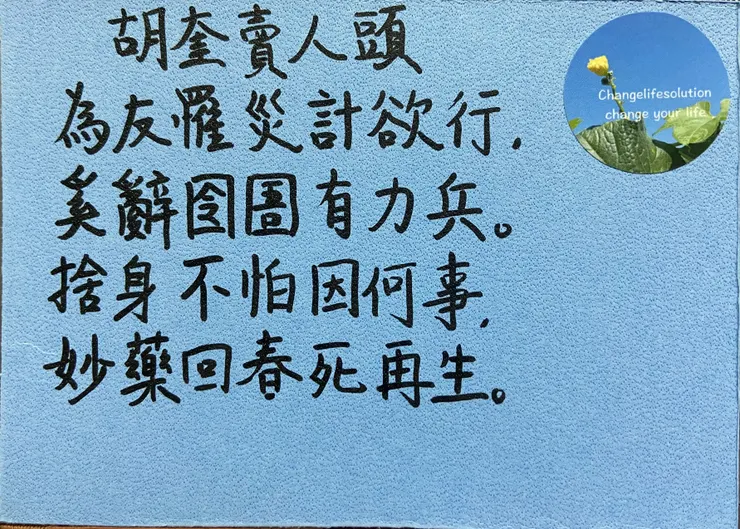 胡奎賣人頭
為友罹災計欲行,
奚辭囹圄有力兵。
捨身不怕因何事,
妙藥回春死再生。
Changelifesolution
change your life